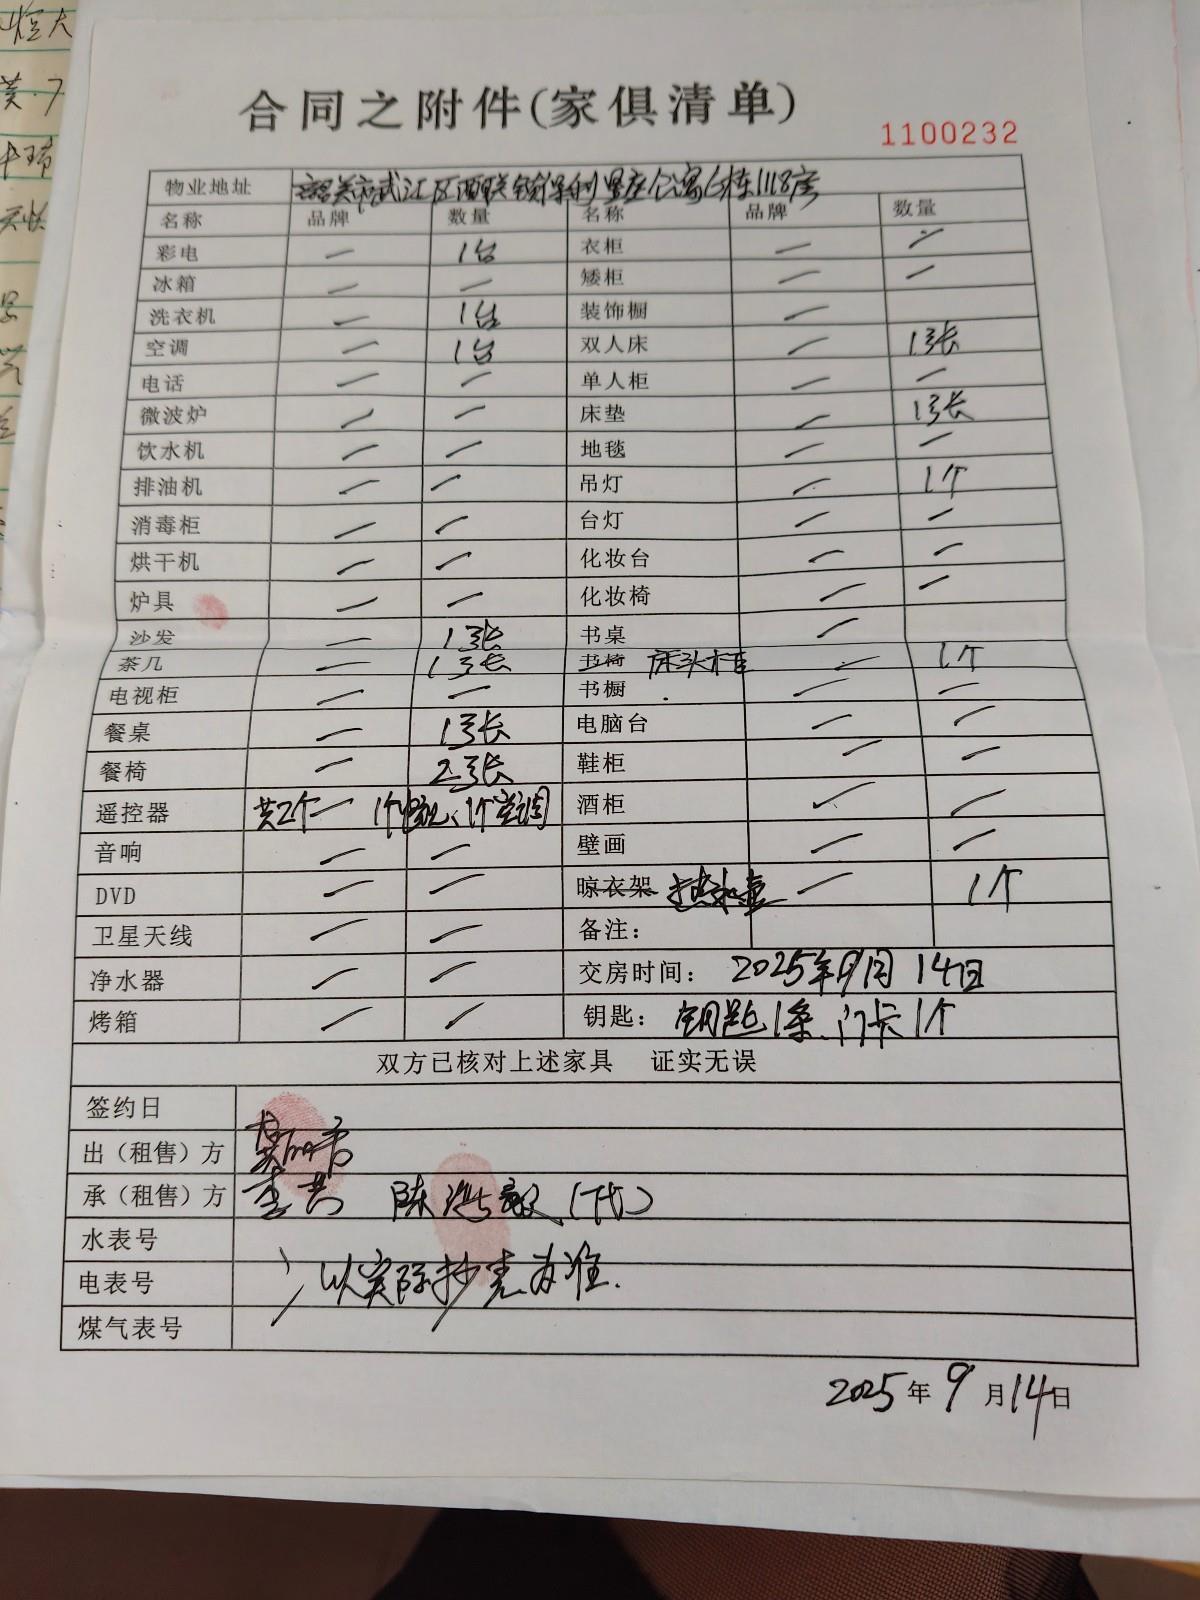 合同之附件(家俱清单)
1100232
物业地址 韶关市武江区西联镇保利星座公寓6栋1118房
名称 品牌 数量 名称 品牌 数量
彩电 — 1台 衣柜 — —
冰箱 — — 矮柜 — —
洗衣机 — 1台 装饰橱 —
空调 — 1台 双人床 — 1张
电话 — — 单人柜 — —
微波炉 — — 床垫 — 1张
饮水机 — — 地毯 — —
排油机 — — 吊灯 — 1个
消毒柜 — — 台灯 — —
烘干机 — — 化妆台 — —
炉具 — — 化妆椅 — —
沙发 — 1张 书桌 —
茶几 — 1张 书椅 床头柜 — 1个
电视柜 — — 书橱 — —
餐桌 — 1张 电脑台 — —
餐椅 — 2张 鞋柜 — —
遥控器 共2个— 1个电视、1个空调 酒柜 — —
音响 — — 壁画 — —
DVD — — 晾衣架 热水壶 — 1个
卫星天线 — — 备注:
净水器 — — 交房时间: 2025年9月14日
烤箱 — — 钥匙: 钥匙1条、门卡1个
双方已核对上述家具 证实无误
签约日
出(租售)方
承(租售)方 陈 敏(代)
水表号
电表号 以实际抄表为准.
煤气表号
2025年9月14日